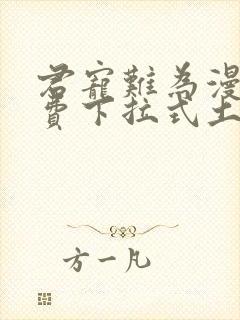 君寵難為漫
費下拉式土
方一凡